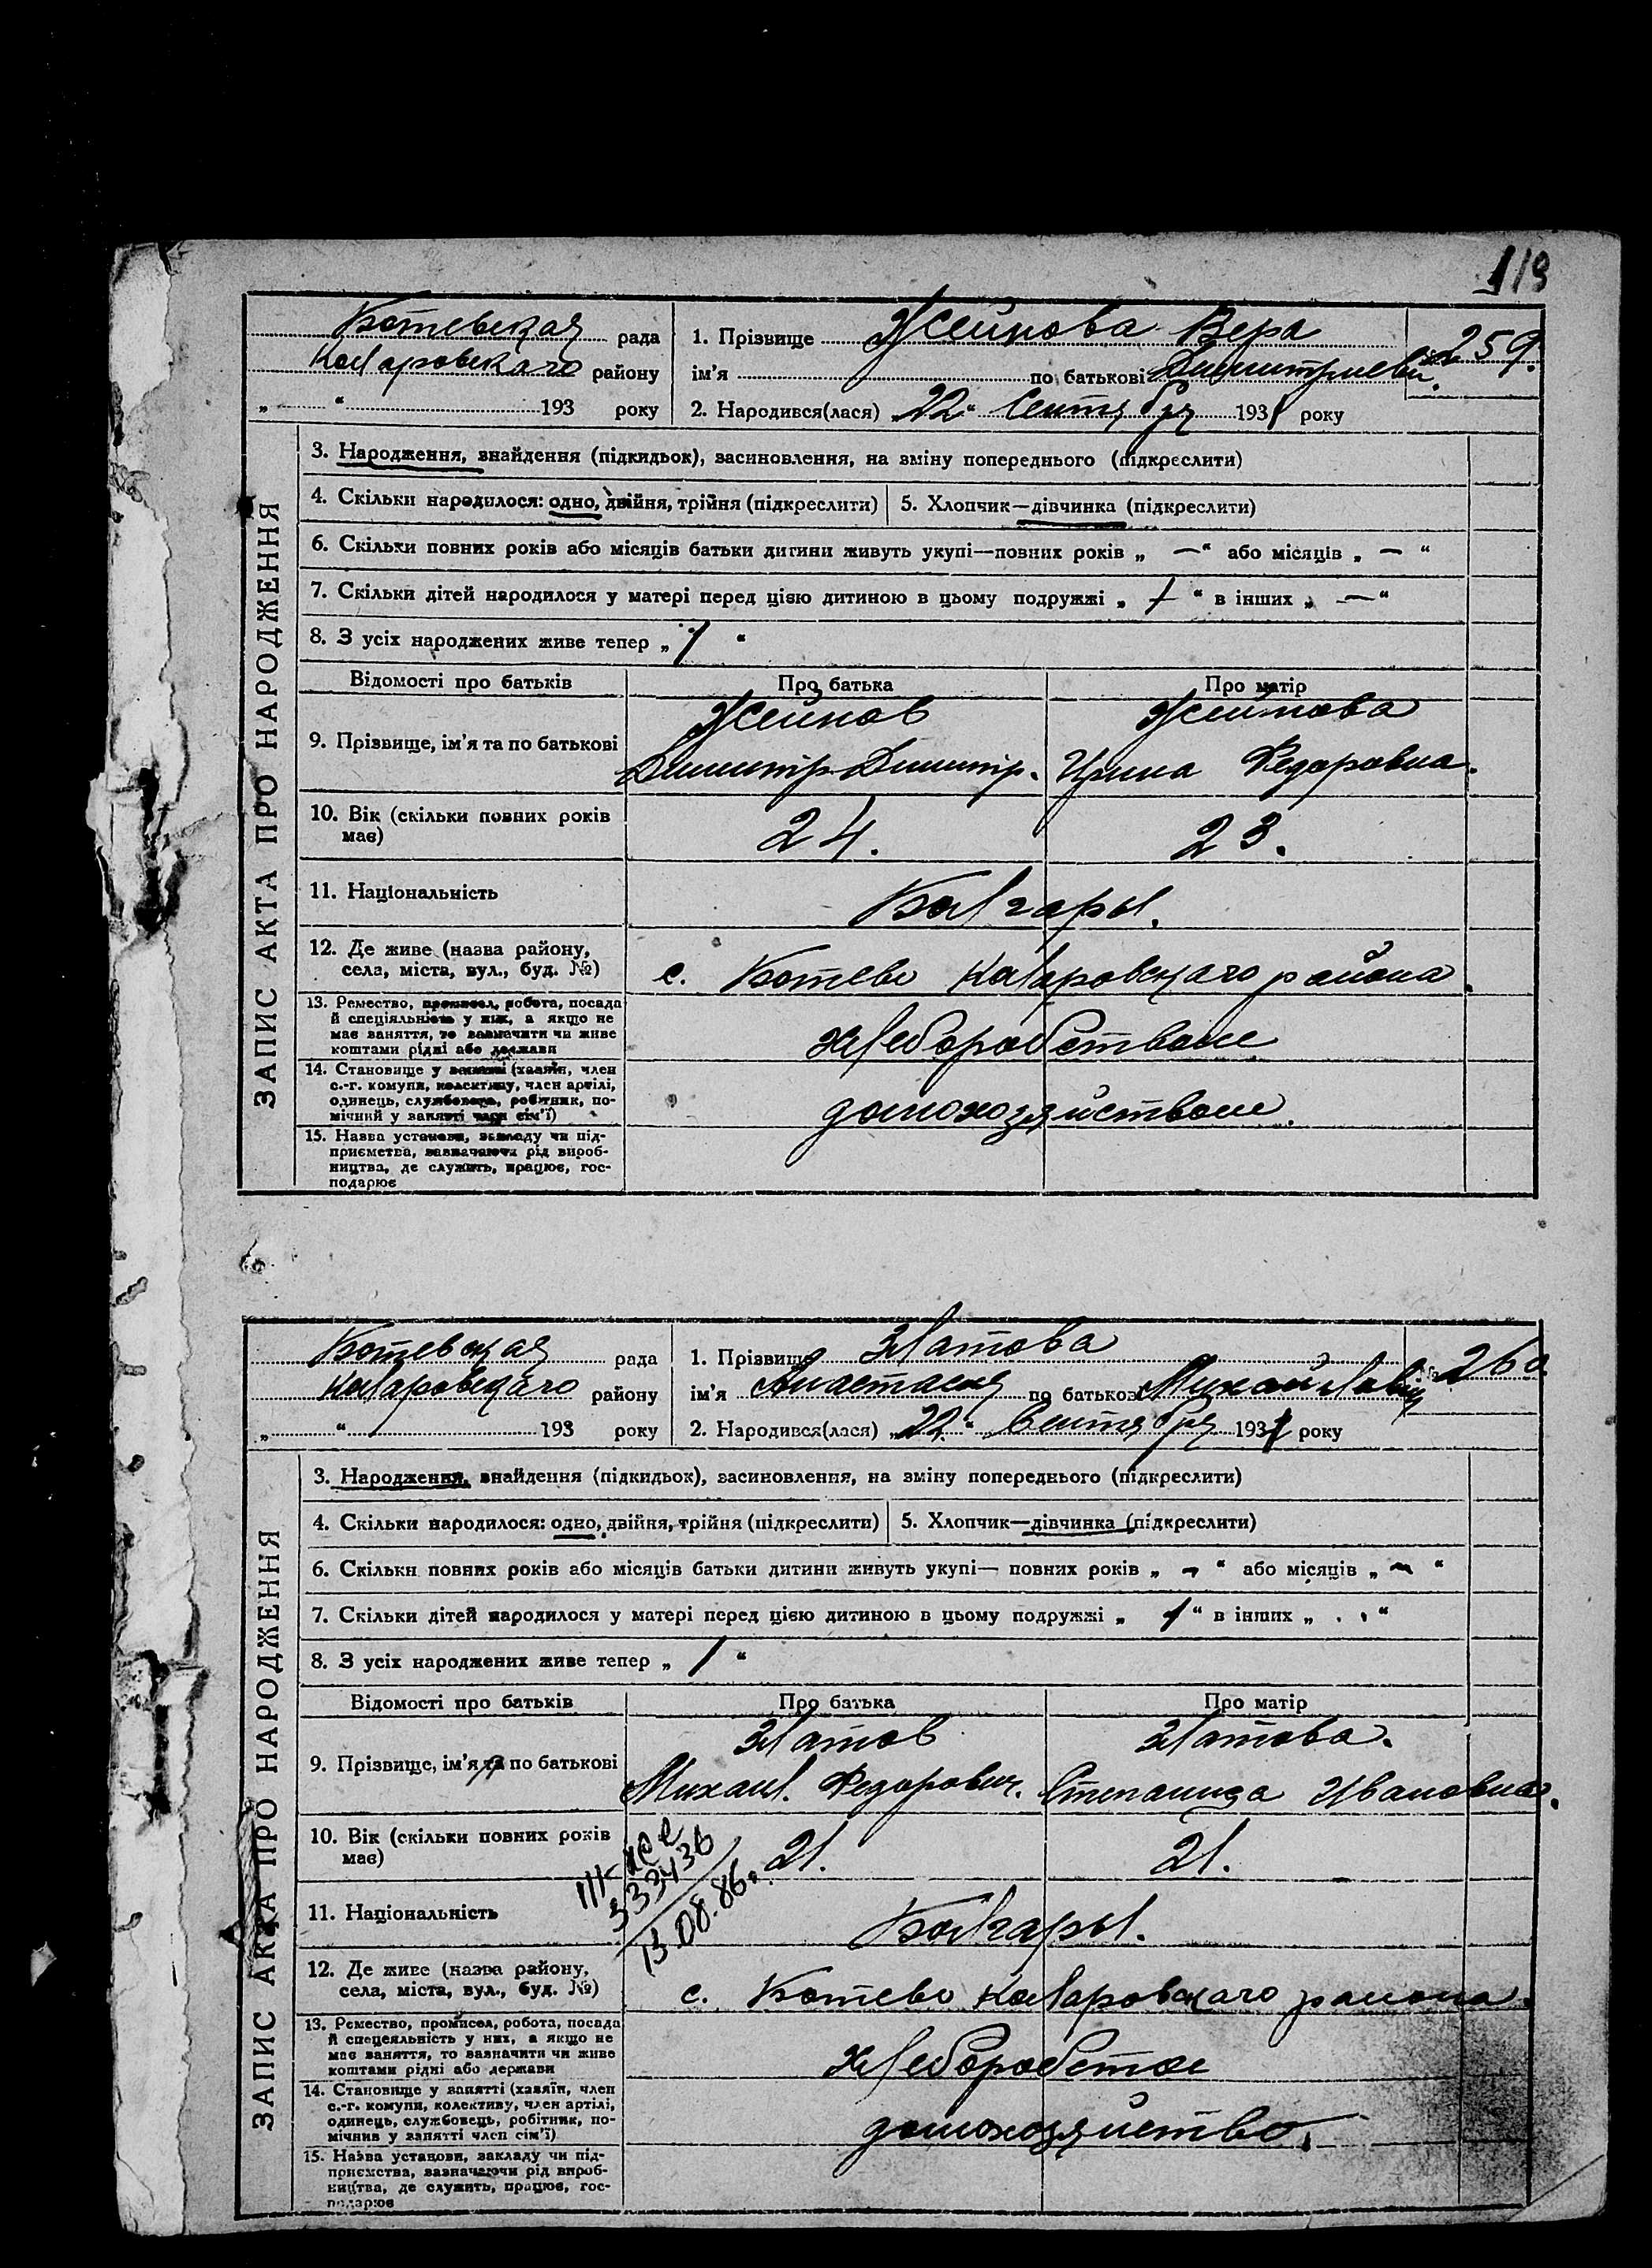 119
Ботевская рада
Коларовскаго району
„ “ 193 року
1. Прізвище Жейнова Вера
ім'я по батькові Димитриевн.
259.
2. Народився(лася) 22 “ Сентября 1931 року
ЗАПИС АКТА ПРО НАРОДЖЕННЯ
3. Народження, знайдення (підкидьок), засиновлення, на зміну попереднього (підкреслити)
4. Скільки народилося: одно, двійня, трійня (підкреслити)
5. Хлопчик—дівчинка (підкреслити)
6. Скільки повних років або місяців батьки дитини живуть укупі—повних років „ — “ або місяців „ — “
7. Скільки дітей народилося у матері перед цією дитиною в цьому подружжі „ “ в інших „ — “
8. З усіх народжених живе тепер „ 1 “
Відомості про батьків
Про батька
Про матір
9. Прізвище, ім'я та по батькові
Жейнов
Димитр Димитр.
Жейнова
Ирина Федоровна.
10. Вік (скільки повних років
має)
24.
23.
11. Національність
Болгары.
12. Де живе (назва району,
села, міста, вул., буд. №)
с. Ботево Коларовскаго района.
13. Ремество, промисел, робота, посада
й спеціяльність у них, а якщо не
має заняття, то зазначити чи живе
коштами рідні або держави
хлеборобством
14. Становище у занятті (хазяїн, член
с.-г. комуни, колективу, член артілі,
одинець, службовець, робітник, по-
мічний у занятті член сім'ї)
домохозяйством.
15. Назва установи, закладу чи під-
приємства, зазначаючи рід вироб-
ництва, де служить, працює, гос-
подарює
Ботевская рада
Коларовскаго району
„ “ 193 року
1. Прізвище Златова
ім'я Анастасия по батькові Михайловн
№ 260.
2. Народився(лася) „ 22. “ Сентября 1931 року
ЗАПИС АКТА ПРО НАРОДЖЕННЯ
3. Народження, знайдення (підкидьок), засиновлення, на зміну попереднього (підкреслити)
4. Скільки народилося: одно, двійня, трійня (підкреслити)
5. Хлопчик—дівчинка (підкреслити)
6. Скільки повних років або місяців батьки дитини живуть укупі— повних років „ — “ або місяців „ — “
7. Скільки дітей народилося у матері перед цією дитиною в цьому подружжі „ 1 “ в інших „ “
8. З усіх народжених живе тепер „ 1 “
Відомості про батьків
Про батька
Про матір
9. Прізвище, ім'я та по батькові
Златов
Михаил. Федорович.
Златова.
Степанида Ивановна.
10. Вік (скільки повних років
має)
21.
21.
333436
13.08.86г.
11. Національність
Болгары.
12. Де живе (назва району,
села, міста, вул., буд. №)
с. Ботево Коларовскаго района.
13. Ремество, промисел, робота, посада
й спецеяльність у них, а якщо не
має заняття, то зазначити чи живе
коштами рідні або держави
14. Становище у занятті (хазяїн, член
с.-г. комуни, колективу, член артілі,
одинець, службовець, робітник, по-
мічнив у занятті член сім'ї)
домохозяйство.
15. Назва установи, закладу чи під-
приємства, зазначаючи рід вироб-
ництва, де служить, працює, гос-
подарює